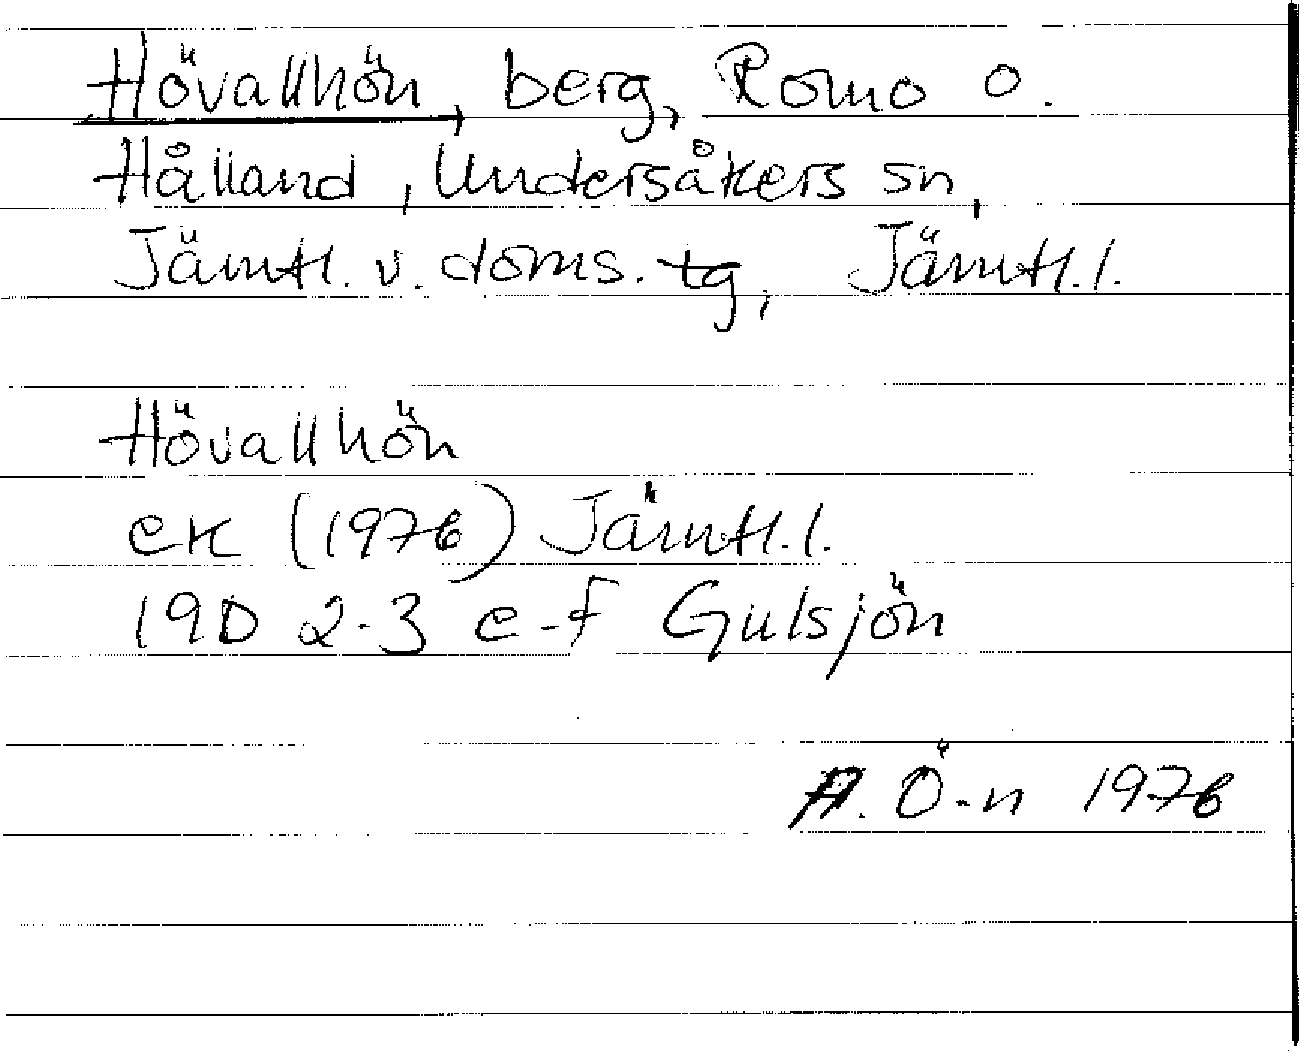 Hövallhön, berg, Romo o.
Hålland, Undersåkers sn,
Jämtl. v. doms. tg, Jämtl. l.
Hövallhön
ek (1976) Jämtl. l.
19D 2-3 e-f Gulsjön
A. Ö-n 1976